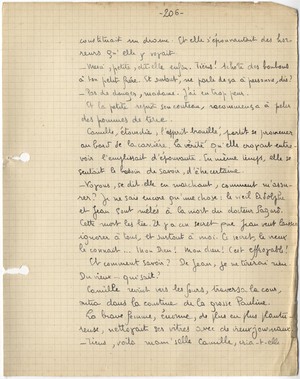 -206-
constituait un drame. Et elle s'épouvantait des hor-
reurs qu'elle y voyait.
- Merci, petite, dit-elle enfin. Tiens! achète des bonbons
à ton petit frère. Et surtout, ne parle de ça à personne, dis?
- Pas de danger, madame. J'ai eu trop peur.
Et la petite reprit son couteau, recommença à peler
des pommes de terre.
Camille, étourdie, l'esprit brouillé, partit se promener
au bord de la carrière. La vérité qu'elle croyait entre-
voir l'emplissait d'épouvante. En même temps, elle se
sentait le besoin de savoir, d'être certaine.
- Voyons, se dit-elle en marchant, comment m'assu-
rer? Je ne sais encore qu'une chose: le vieil
et Jean sont mêlés à la mort du docteur
Cette mort les lie. Il y a un secret que Jean veut laisser
ignorer à tous, et surtout à moi. Ce secret, le vieux
le connaît... Mon Dieu! mon Dieu! c'est effroyable!
Et comment savoir? De Jean, je ne tirerai rien.
Du vieux - qui sait?
Camille revint vers les fours, traversa la cour,
entra dans la cantine de la grosse Pauline.
La brave femme, énorme, de plus en plus plantu-
reuse, nettoyait ses vitres avec de vieux journaux.
- Tiens, voilà mam'selle Camille, cria-t-elle